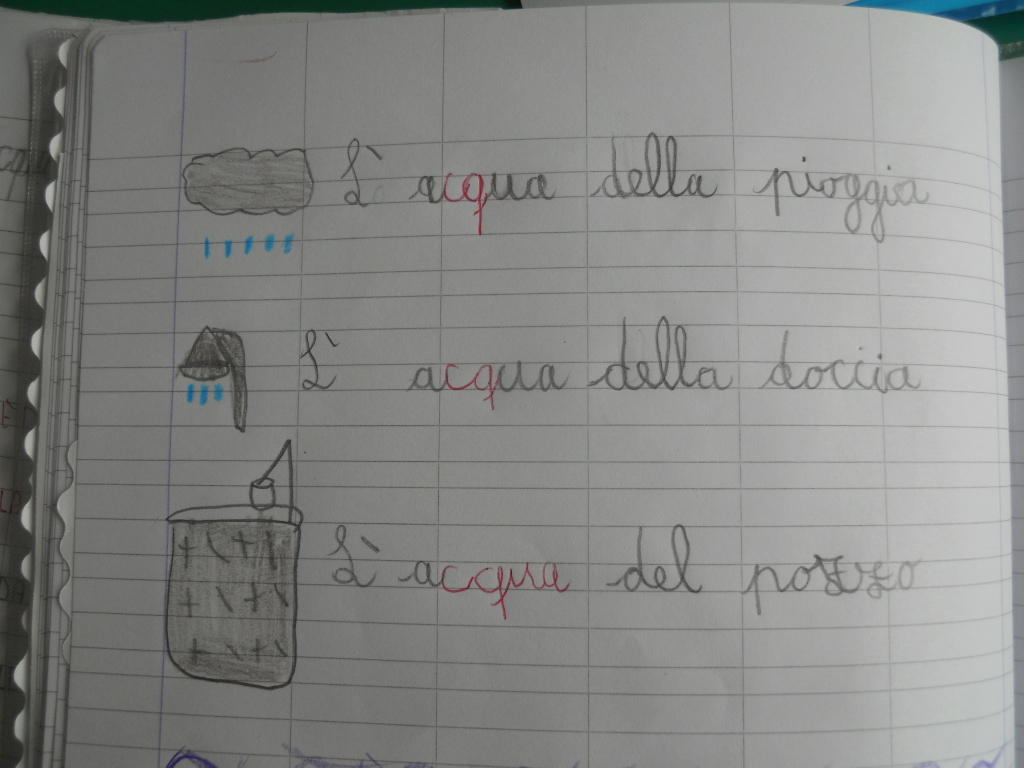 L'acqua della pioggia
L'acqua della doccia
L'acqua del pozzo